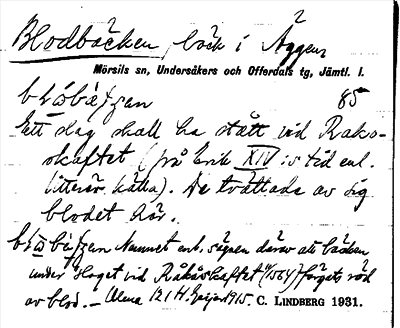 Blodbäcken, bäck i Äggen,
Mörsils sn, Undersåkers och Offerdals tg, Jämtl. l.
85
Ett slag skall ha stått vid Råkå-
skaftet (på Erik XIV:s tid enl.
litterär källa). De tvättade av sig
blodet där.
Namnet enl. sägnen därav att bäcken
under slaget vid Råkåskaftet (1564) färgats röd
av blod. – 1915. C. LINDBERG 1931.